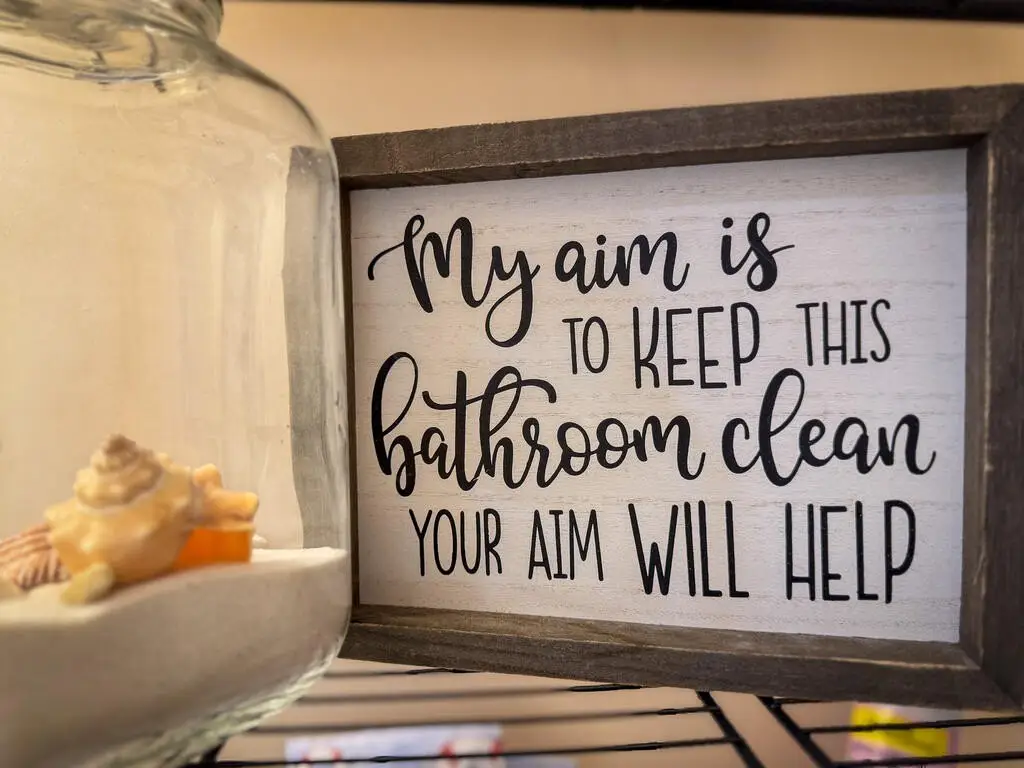 My aim is
TO KEEP THIS
bathroom clean
YOUR AIM WILL HELP